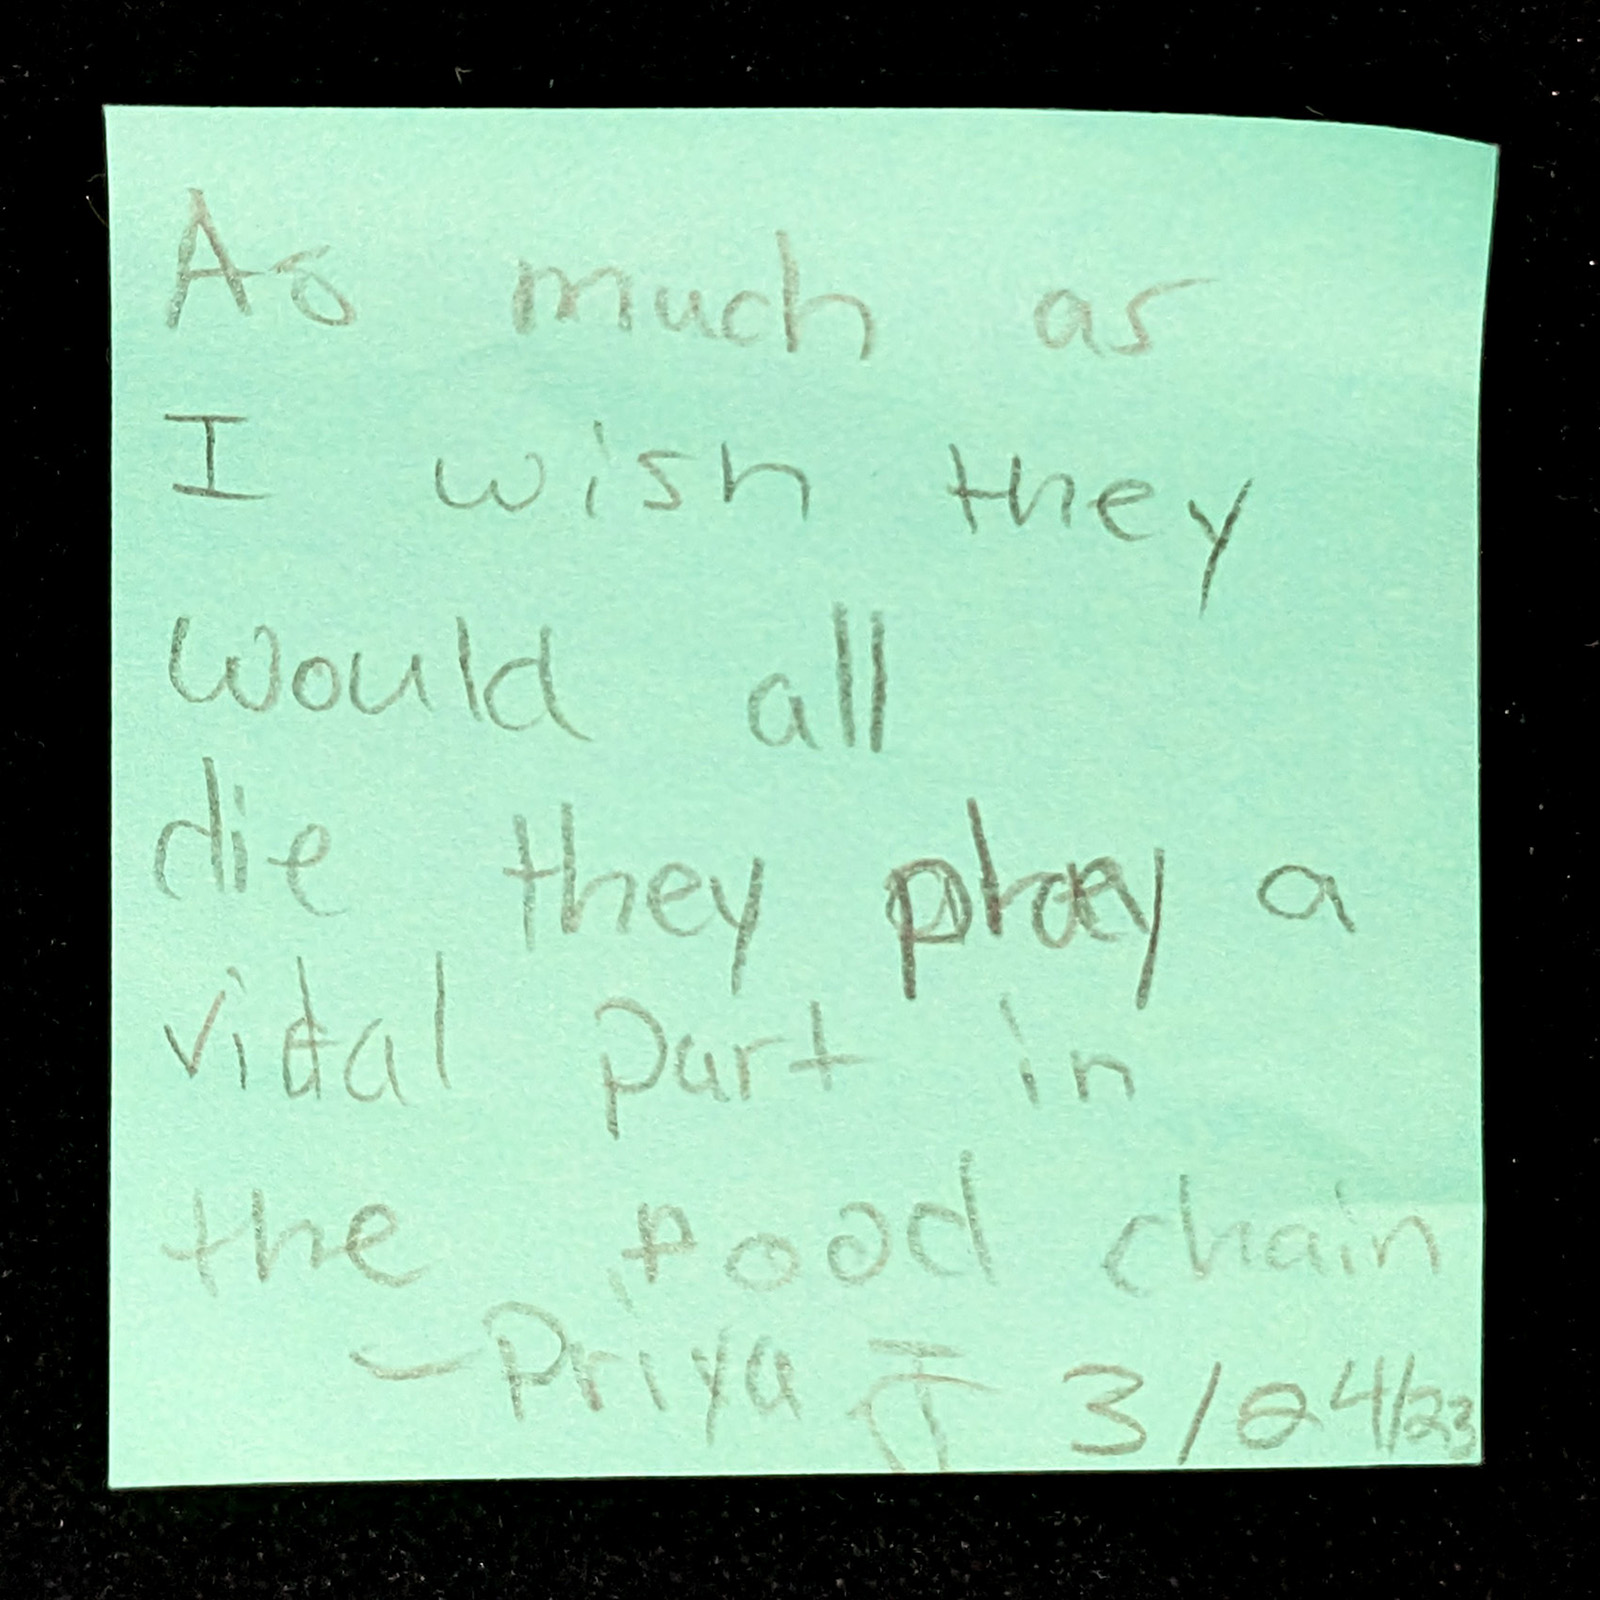 As much as
I wish they
would all
die they play a
vital part in
the food chain
- Priya J 3/24/23